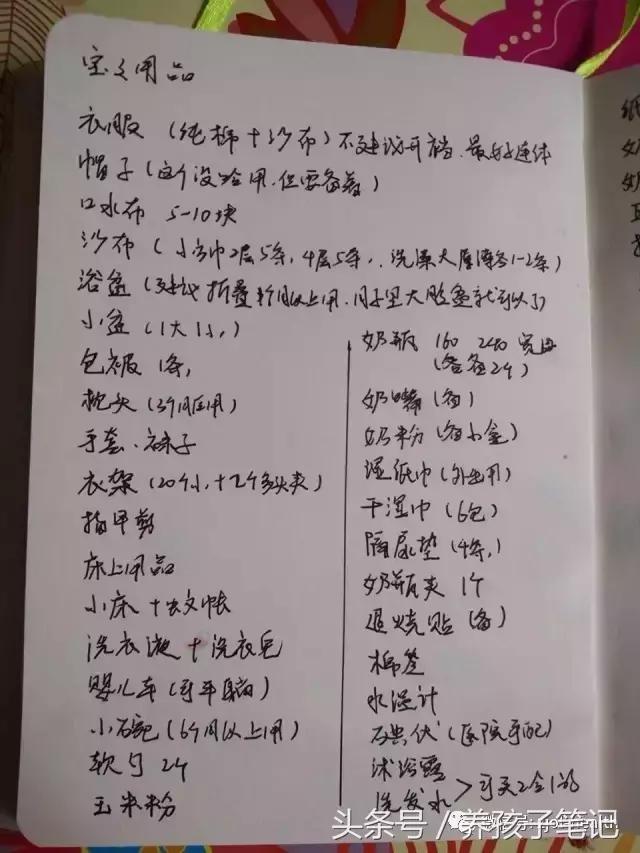 宝宝用品
衣服（纯棉+沙布）不建议开裆、最好连体
帽子（这个没啥用，但要备着）
口水布 5-10块
沙布（小方巾2层5条，4层5条，洗澡大厚薄各1-2条）
浴盆（建议折叠 月以上用，月子里大脸盆就可以了）
小盆（1大1小）
包被 1条
枕头（3个月后用）
手套、袜子
衣架（20个小+2个多头夹）
指甲剪
床上用品
小床+蚊帐
洗衣液+洗衣皂
婴儿车（可平躺）
小碗（6个月以上用）
软勺 2个
玉米粉
奶瓶 160 240 宽口
（各备2个）
奶嘴（备）
奶粉（备小盒）
湿纸巾（外出用）
干湿巾（6包）
隔尿垫（4条）
奶瓶夹 1个
退烧贴（备）
棉签
水温计
（医院可配）
沐浴露
洗发水 > 可买2合1的
纸
奶
奶
头条号／养孩子笔记